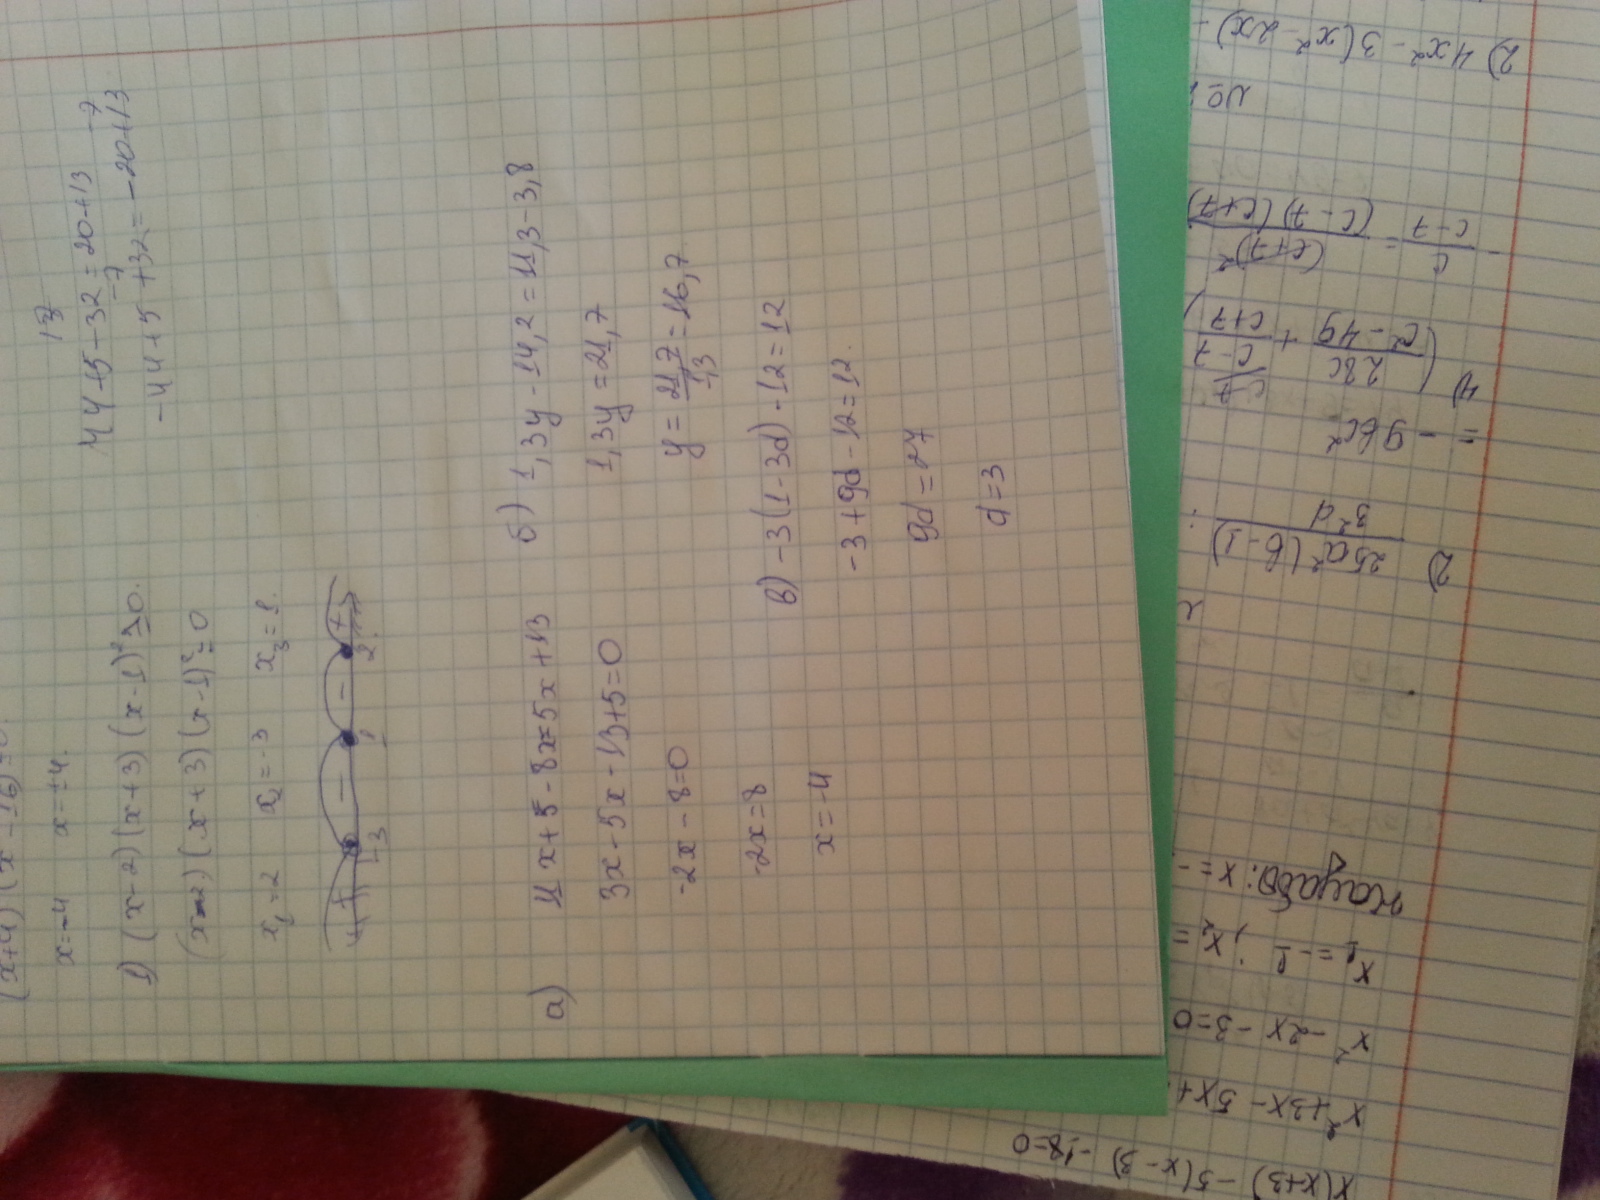 x=-4 x=±4.
1) (x-2)(x+3)(x-1)²≥0.
(x-2)(x+3)(x-1)²=0
x₁=2 x₂=-3 x₃=1.
+ - - +
-3 1 2
44+5-32=20+13
-7 -7
-44+5+32=-20+13
а) 11x+5-8x=5x+13
3x-5x-13+5=0
-2x-8=0
-2x=8
x=-4
б) 1,3y-14,2=11,3-3,8
1,3y=21,7
y=21,7/1,3=16,7
в) -3(1-3d)-12=12
-3+9d-12=12.
9d=27
d=3
x(x+3) -5(x-3) -18=0
x²+3x-5x+
x²-2x-3=0
x₁=-1; x₂=
Жауабы: x=-
2) 25a²(b-1)/3²d :
=-96c²
4) (28c/c²-49 + c-7/c+7)
c/c-7 = (c+7)²/(c-7)(c+7)
2) 4x²-3(x²-2x)-